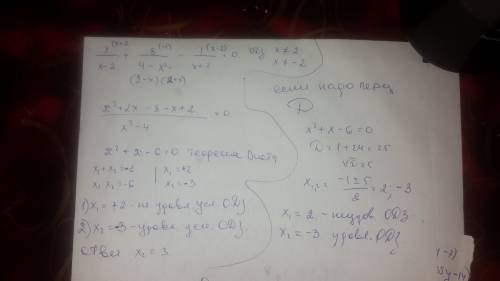 x-2
4-x²
x+2
= 0
ОДЗ x ≠ 2
x ≠ -2
(2-x)(2+x)
x²+2x-8-x+2
x²-4
= 0
x²+x-6=0 теорема Виета
x₁ x₂=-6
x₂=-3
1) x₁=+2 - не удовл. усл. ОДЗ
2) x₂=-3 - удовл. усл. ОДЗ
ответ x₂=3
если надо через
D
x²+x-6=0
D=1+24=25
√D=5
x₁,₂= -1±5
2
=2; -3
x₁=2 - неудов ОДЗ
x₂=-3 удовл. ОДЗ